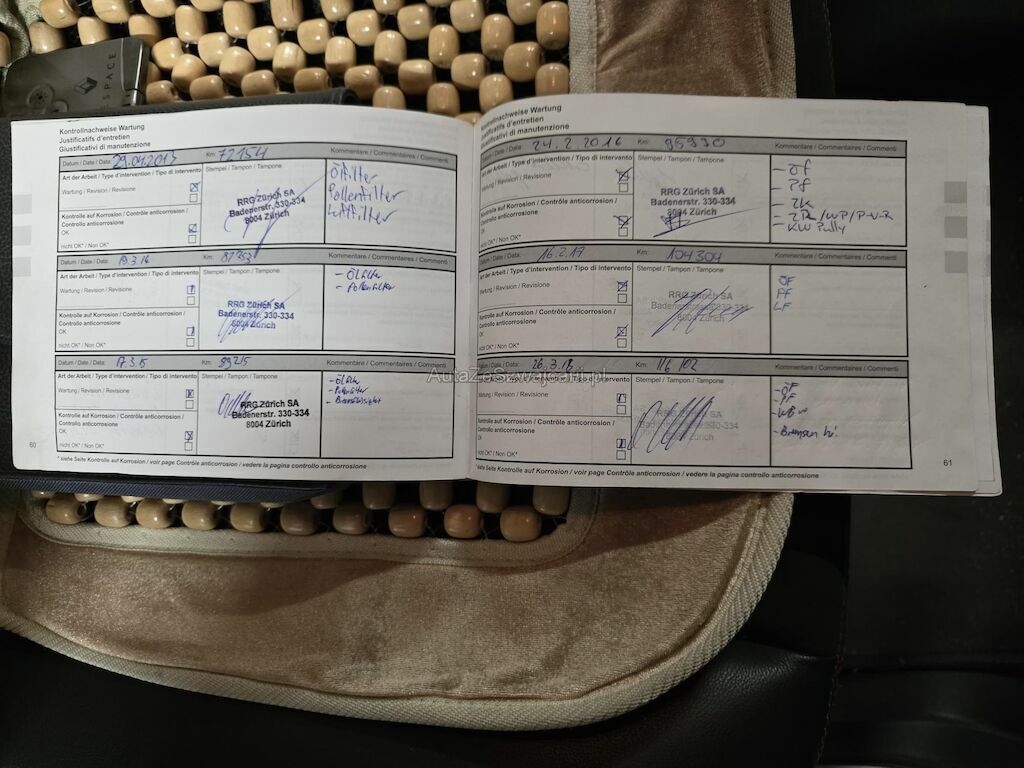 ESPACE
Kontrollnachweise Wartung
Justificatifs d'entretien
Giustificativi di manutenzione
Datum / Date / Data: 29.04.2013 Km: 72154 Kommentare / Commentaires / Commenti
Art der Arbeit / Type d'intervention / Tipo di intervento
Stempel / Tampon / Tampone
Wartung / Revision / Revisione
Kontrolle auf Korrosion / Contrôle anticorrosion /
Controllo anticorrosione
OK
nicht OK* / Non OK*
RRG Zürich SA
Badenerstr. 330-334
8004 Zürich
Ölfilter
Pollenfilter
Luftfilter
Datum / Date / Data: Km: Kommentare / Commentaires / Commenti
Art der Arbeit / Type d'intervention / Tipo di intervento
Stempel / Tampon / Tampone
Wartung / Revision / Revisione
Kontrolle auf Korrosion / Contrôle anticorrosion /
Controllo anticorrosione
OK
nicht OK* / Non OK*
RRG Zürich SA
Badenerstr. 330-334
8004 Zürich
- Ölfilter
- Pollenfilter
Datum / Date / Data: 17.3.15 Km: 89215 Kommentare / Commentaires / Commenti
Art der Arbeit / Type d'intervention / Tipo di intervento
Stempel / Tampon / Tampone
Wartung / Revision / Revisione
Kontrolle auf Korrosion / Contrôle anticorrosion /
Controllo anticorrosione
OK
nicht OK* / Non OK*
RRG Zürich SA
Badenerstr. 330-334
8004 Zürich
- Ölfilter
- Pollenfilter
60
* siehe Seite Kontrolle auf Korrosion / voir page Contrôle anticorrosion / vedere la pagina controllo anticorrosione
Kontrollnachweise Wartung
Justificatifs d'entretien
Giustificativi di manutenzione
Datum / Date / Data: 24.2.2016 Km: 95930 Kommentare / Commentaires / Commenti
Art der Arbeit / Type d'intervention / Tipo di intervento
Stempel / Tampon / Tampone
Wartung / Revision / Revisione
Kontrolle auf Korrosion / Contrôle anticorrosion /
Controllo anticorrosione
OK
nicht OK* / Non OK*
RRG Zürich SA
Badenerstr. 330-334
8004 Zürich
- ÖF
- PF
- ZK
- ZR/WP/P-V-R
- KW Pully
Datum / Date / Data: 16.2.17 Km: 104304 Kommentare / Commentaires / Commenti
Art der Arbeit / Type d'intervention / Tipo di intervento
Stempel / Tampon / Tampone
Wartung / Revision / Revisione
Kontrolle auf Korrosion / Contrôle anticorrosion /
Controllo anticorrosione
OK
nicht OK* / Non OK*
RRG Zürich SA
Badenerstr. 330-334
8004 Zürich
ÖF
PF
LF
Datum / Date / Data: 26.3.18 Km: 116 102 Kommentare / Commentaires / Commenti
Art der Arbeit / Type d'intervention / Tipo di intervento
Stempel / Tampon / Tampone
Wartung / Revision / Revisione
Kontrolle auf Korrosion / Contrôle anticorrosion /
Controllo anticorrosione
OK
nicht OK* / Non OK*
- ÖF
- PF
- Bremsen hi.
* siehe Seite Kontrolle auf Korrosion / voir page Contrôle anticorrosion / vedere la pagina controllo anticorrosione
61
AutaZeSzwajcarii.pl